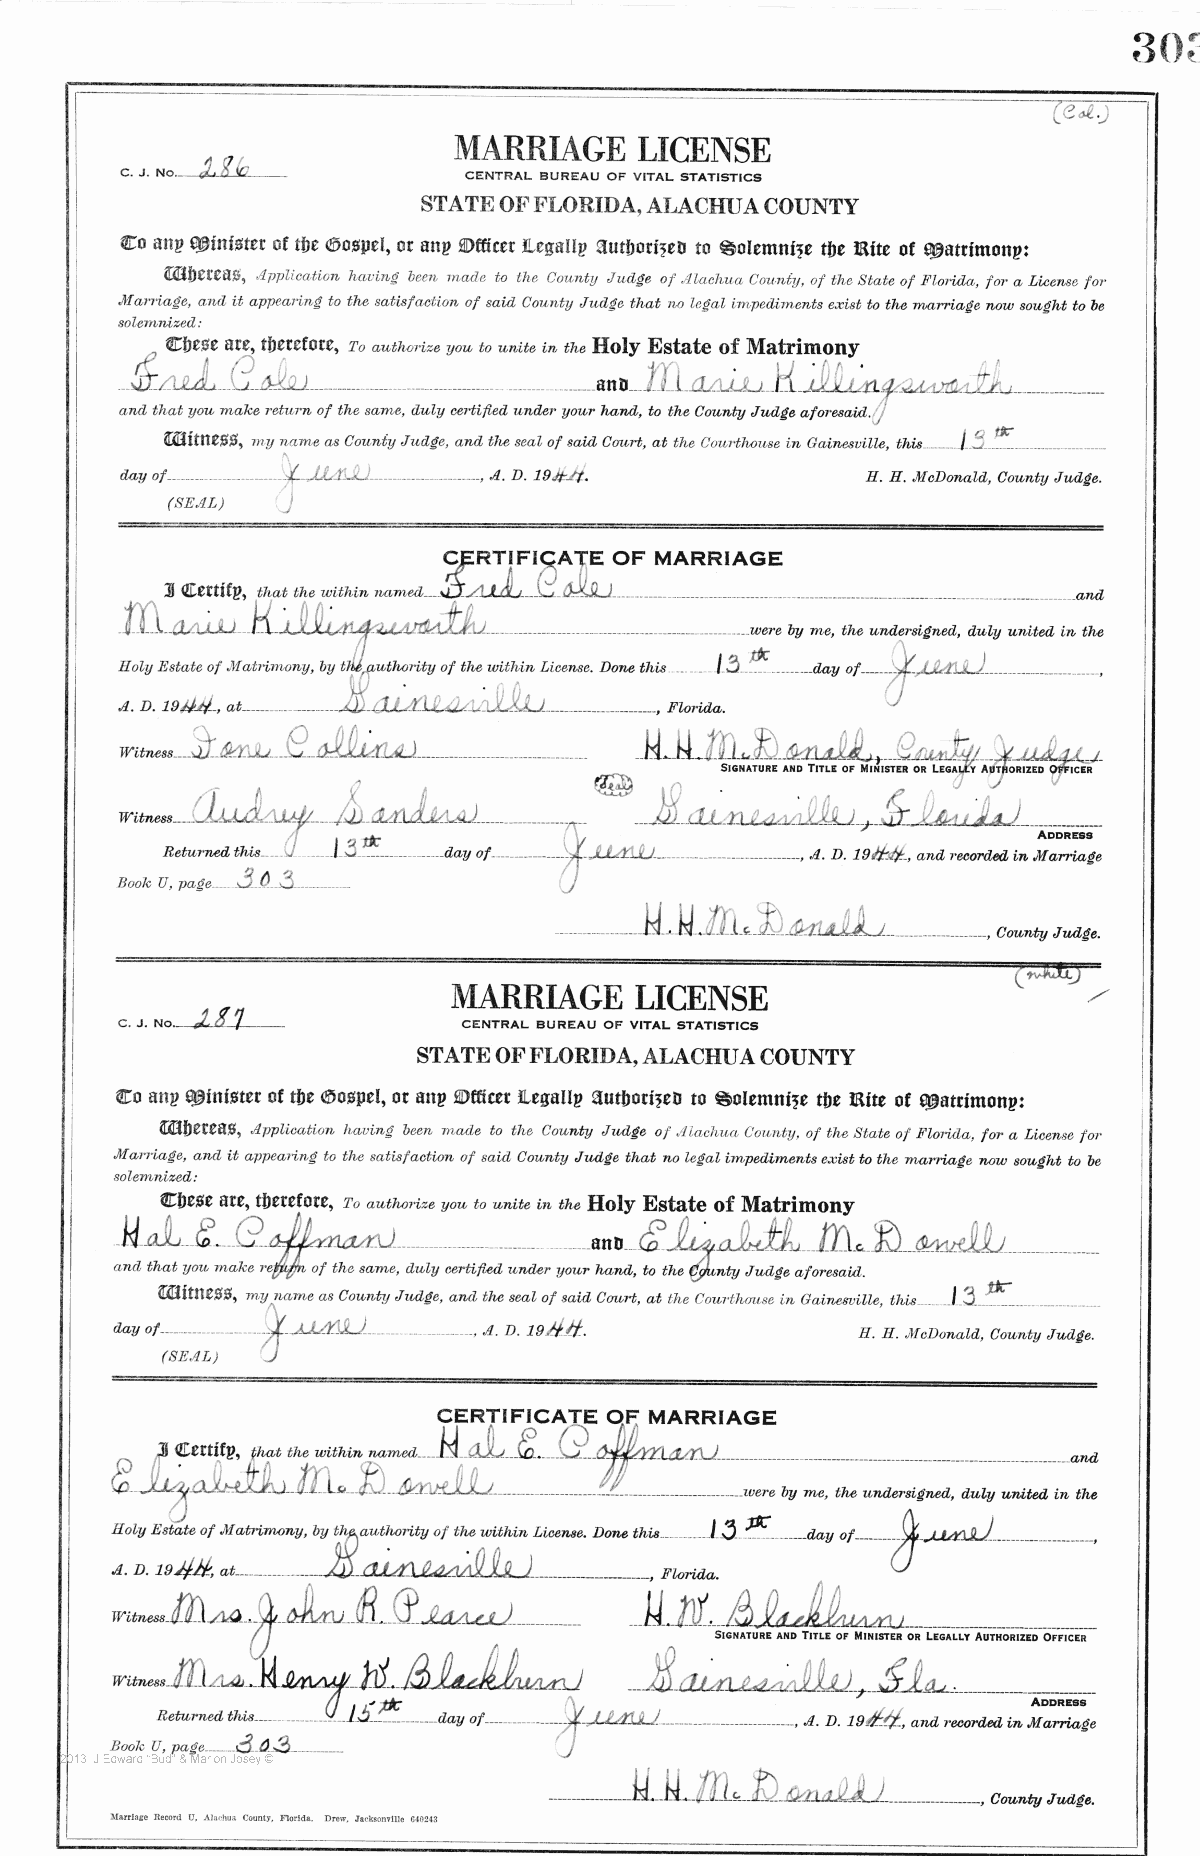 303
(Col.)
MARRIAGE LICENSE
C. J. No. 286
CENTRAL BUREAU OF VITAL STATISTICS
STATE OF FLORIDA, ALACHUA COUNTY
To any Minister of the Gospel, or any Officer Legally Authorized to Solemnize the Rite of Matrimony:
Whereas, Application having been made to the County Judge of Alachua County, of the State of Florida, for a License for
Marriage, and it appearing to the satisfaction of said County Judge that no legal impediments exist to the marriage now sought to be
solemnized:
These are, therefore, To authorize you to unite in the Holy Estate of Matrimony
Fred Cole and Marie Killingsworth
and that you make return of the same, duly certified under your hand, to the County Judge aforesaid.
Witness, my name as County Judge, and the seal of said Court, at the Courthouse in Gainesville, this 13th
day of June, A. D. 1944. H. H. McDonald, County Judge.
(SEAL)
CERTIFICATE OF MARRIAGE
I Certify, that the within named Fred Cole and
Marie Killingsworth were by me, the undersigned, duly united in the
Holy Estate of Matrimony, by the authority of the within License. Done this 13th day of June,
A. D. 1944, at Gainesville, Florida.
Witness Ione Collins H. H. McDonald, County Judge
SIGNATURE AND TITLE OF MINISTER OR LEGALLY AUTHORIZED OFFICER
Seal
Witness Audrey Sanders Gainesville, Florida
ADDRESS
Returned this 13th day of June, A. D. 1944, and recorded in Marriage
Book U, page 303
H. H. McDonald, County Judge.
(white)
MARRIAGE LICENSE
C. J. No. 287
CENTRAL BUREAU OF VITAL STATISTICS
STATE OF FLORIDA, ALACHUA COUNTY
To any Minister of the Gospel, or any Officer Legally Authorized to Solemnize the Rite of Matrimony:
Whereas, Application having been made to the County Judge of Alachua County, of the State of Florida, for a License for
Marriage, and it appearing to the satisfaction of said County Judge that no legal impediments exist to the marriage now sought to be
solemnized:
These are, therefore, To authorize you to unite in the Holy Estate of Matrimony
Hal E. Coffman and Elizabeth McDowell
and that you make return of the same, duly certified under your hand, to the County Judge aforesaid.
Witness, my name as County Judge, and the seal of said Court, at the Courthouse in Gainesville, this 13th
day of June, A. D. 1944. H. H. McDonald, County Judge.
(SEAL)
CERTIFICATE OF MARRIAGE
I Certify, that the within named Hal E. Coffman and
Elizabeth McDowell were by me, the undersigned, duly united in the
Holy Estate of Matrimony, by the authority of the within License. Done this 13th day of June,
A. D. 1944, at Gainesville, Florida.
Witness Mrs. John R. Pearce H. W. Blackburn
SIGNATURE AND TITLE OF MINISTER OR LEGALLY AUTHORIZED OFFICER
Witness Mrs. Henry W. Blackburn Gainesville, Fla.
ADDRESS
Returned this 15th day of June, A. D. 1944, and recorded in Marriage
Book U, page 303
2013 J Edward "Bud" & Marion Josey ©
H. H. McDonald, County Judge.
Marriage Record U, Alachua County, Florida. Drew, Jacksonville 640243